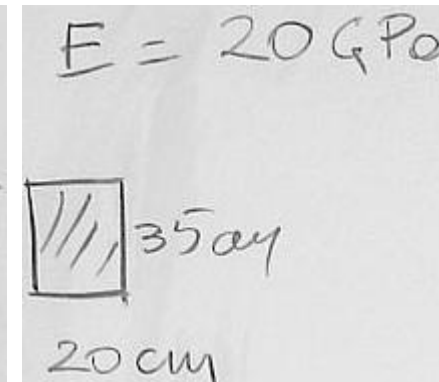 E = 20 GPa
35 cm
20 cm